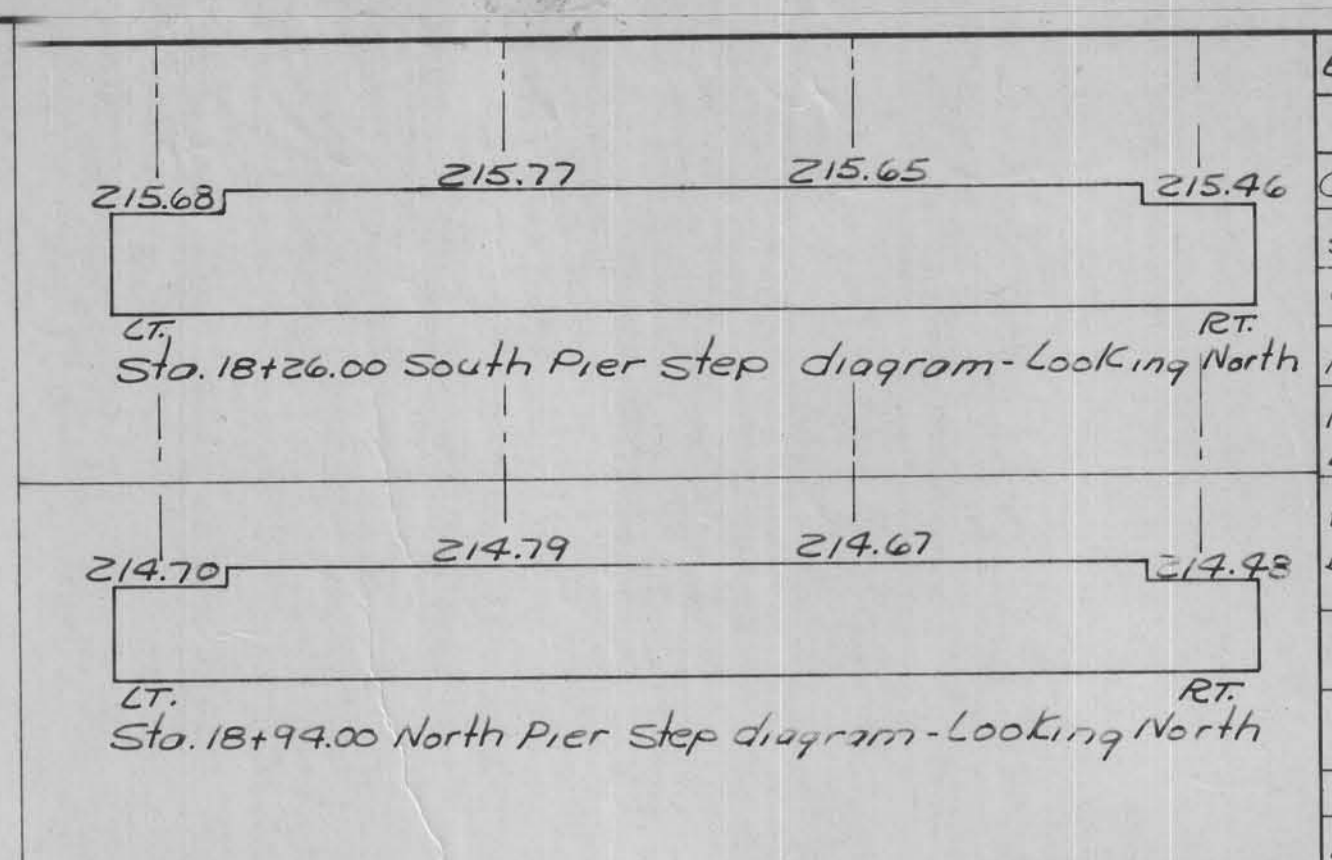 215.68 215.77 215.65 215.46
LT. RT.
Sta. 18+26.00 South Pier Step diagram - Looking North
214.70 214.79 214.67 214.48
LT. RT.
Sta. 18+94.00 North Pier Step diagram - Looking North